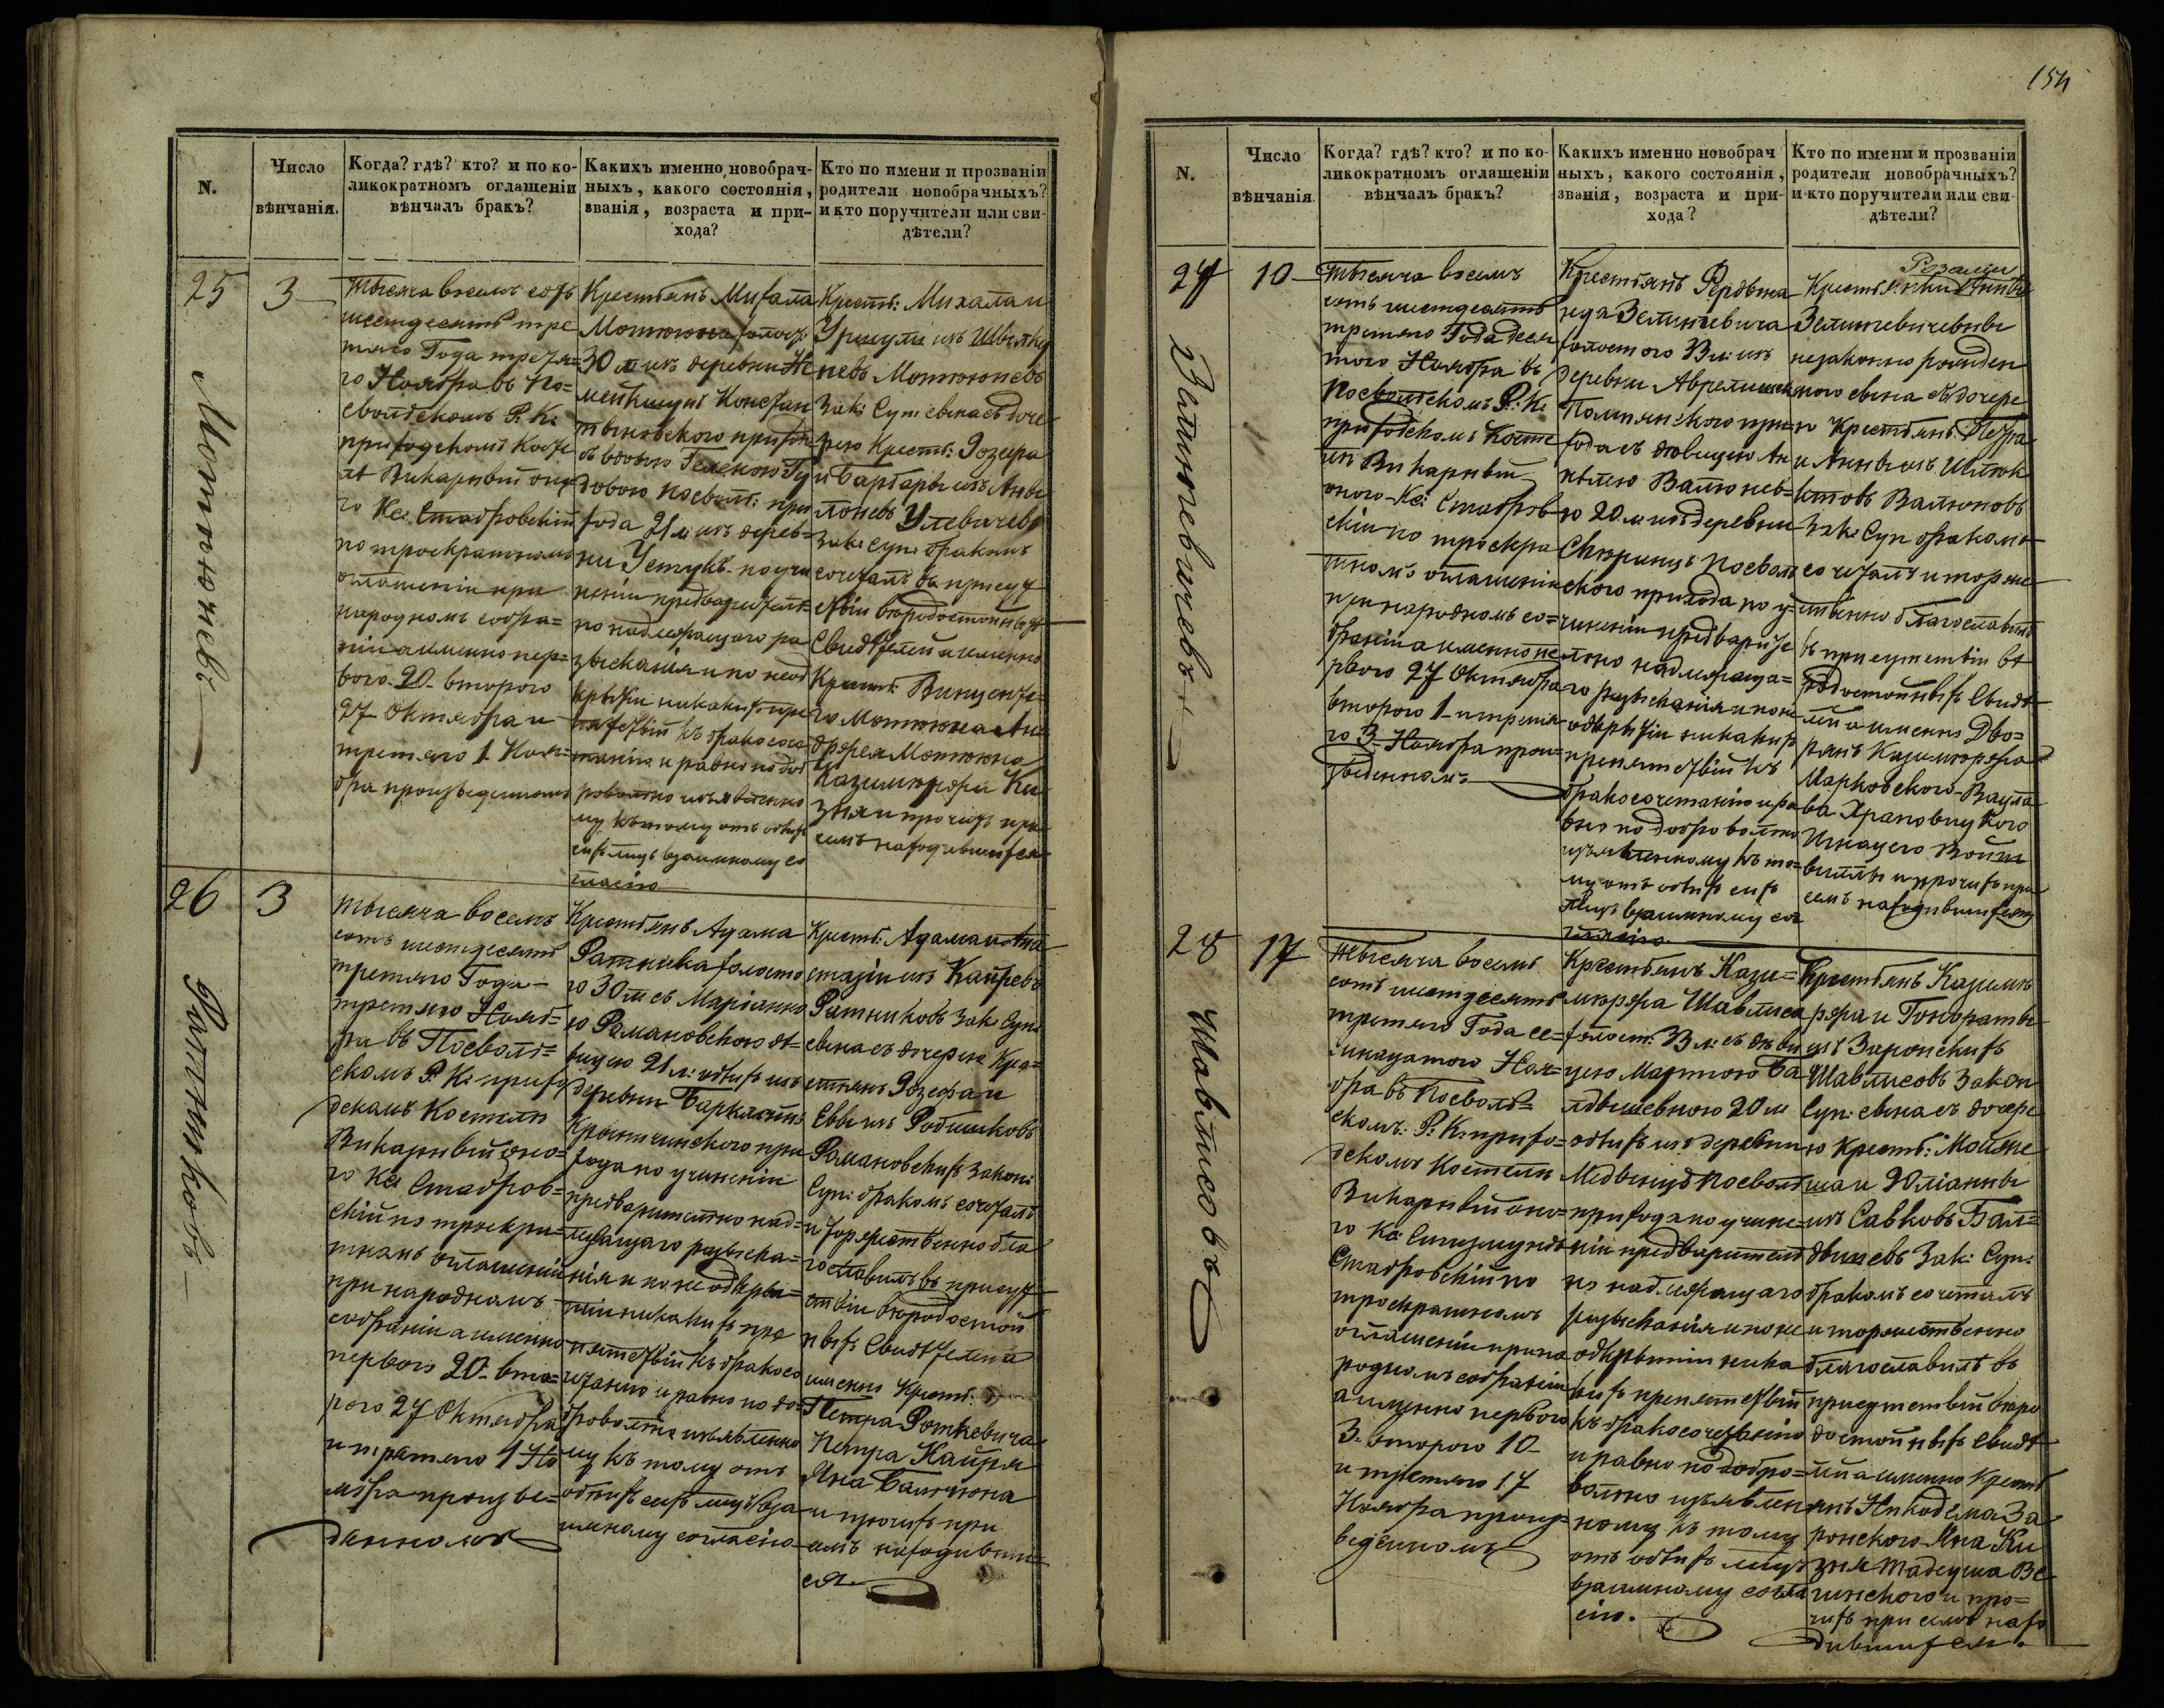 154
N.
Число
вѣнчанія.
Когда? гдѣ? кто? и по ко-
ликократномъ оглашеніи
вѣнчалъ бракъ?
Какихъ именно новобрач-
ныхъ, какого состоянія,
званія, возраста и при-
хода?
Кто по имени и прозванію
родители новобрачныхъ?
и кто поручители или сви-
дѣтели?
25
Мотюневъ
3
Тысяча восемь сотъ
шестдесятъ тре
тяго Года третя=
го Ноября въ По=
свольскомъ Р. К.
приходскомъ Косте
лѣ Викарный оно
го Кс: Стабровскій
по троекратномъ
оглашеніи при
народномъ собра=
ніи а именно пер=
вого 20 второго
27 Октября и
третяго 1 Нояб=
бря произведенномъ
Крестьянъ Михала
Мотююна холост
30 л изъ деревни
Констан
тыновского прихода
съ вдовою Геленою Гу
довою посволь: при
хода 21 л: изъ дерев=
ни Устукъ по учи
неніи предварительн=
но надлежащаго ра
зысканія и по неот
крытіи никакихъ пре
пятствій къ бракосоче
танію и равно по доб
ровольно изъявленно
му къ тому отъ обѣихъ
сихъ лицъ взаимному со
гласію
Крестъ: Михала и
Уршули изъ
невъ Мотюневъ
Зак: Суп: сына съ доче
рею Крестъ: Іозефа
и Барбары изъ
Улевичевъ
зак: суп: бракомъ
сочеталъ въ присут
ствіи вѣродостойныхъ
Свидѣтелей а именно
Крестъ: Винцента=
го Мотююна Ан=
дрея Мотююна
Казимержа Ки
зня и прочихъ при
семъ находившихся
26
Ратниковъ
3
Тысяча восемь
сотъ шестдесятъ
третяго Года
третяго Нояб=
ря въ Посволь=
скомъ Р. К. прихо
дскомъ Костелѣ
Викарный оно=
го Кс: Стабров=
скій по троекра=
тномъ оглашеніи
при народномъ
собраніи а именно
первого 20 вто=
рого 27 Октября
и третяго 1 Но
ября произве=
денномъ
Крестьянъ Адама
Ратника холосто
го 30 л съ Маріанно
ю Рамановскою дѣ=
вицею 21 л: обѣихъ изъ
деревни
Крыничинского при
хода по учиненіи
предварительно над=
лежащаго разыска=
нія и по не откры=
тіи никакихъ пре
пятствій къ бракосо
чтанію и равно по до=
бровольно изъявленно
му къ тому отъ
обѣихъ сихъ лицъ вза
имному согласію
Крестъ: Адама и Ана
стазіи изъ Кайревъ
Ратниковъ Зак Суп:
сына съ дочерею Кре=
стьянъ Іозефа и
Еввы изъ
Рамановскихъ закон:
Суп: бракомъ сочеталъ
и торжественно бла
гославилъ въ присут
ствіи вѣродостой
ныхъ Свидѣтелей а
именно Крестъ:
Петра Роткевича
Петра Кайря
Яна Балтюна
и прочихъ при
семъ находивши=
ся
N.
Число
вѣнчанія.
Когда? гдѣ? кто? и по ко-
ликократномъ оглашеніи
вѣнчалъ бракъ?
Какихъ именно новобрач
ныхъ, какого состоянія,
званія, возраста и при-
хода?
Кто по имени и прозваніи
родители новобрачныхъ?
и кто поручители или сви-
дѣтели?
27
10
Тысяча восемь
сотъ шестдесятъ
третяго Года деся
того Ноября въ
Посвольскомъ Р. К.
приходскомъ Косте
лѣ Викарный
оного Кс: Стабров
скій по троекра
тномъ оглашеніи
при народномъ со=
браніи а именно пе
рвого 27 Октября
второго 1 и третя
го 3 Ноября прои=
зведенномъ
Крестьянъ Фердына
нда Зелинкевича
холостого
деревни
прихо
хода съ дѣвицею Ан
нѣлею Валюнев=
ю 20 л изъ деревни
Посволь
ского прихода по у=
чиненіи предварите
льно надлежаща=
го разысканія и по не
открытіи никакихъ
препятствій къ
бракосочетанію и ра
вно по добровольно
изъявленному къ то=
му отъ обѣихъ сихъ
лицъ взаимному сог
ласію
Розаліи
Крестьянки
Зелинкевичевны
незаконно рожден
ного сына съ дочере
ю Крестьянъ Петра
и Анны изъ
Валюновъ
Зак: Суп бракомъ
сочеталъ и торже
ственно благославилъ
въ присутствіи вѣ
родостойныхъ Свидѣ
лей а именно Дво=
рянъ Казимержа
Марковского Вацла
ва Храповицкого
Игнацего
и прочихъ при
семъ находившихся
28
Шавлисовъ
17
Тысяча восемь
сотъ шестдесятъ
третяго Года се=
мнацатого Ноя=
бря въ Посволь=
скомъ: Р. К. прихо=
дскомъ Костелѣ
Викарный оно=
го Кс Сигизмундъ
Стабровскій по
троекратномъ
оглашеніи при на
родномъ собраніи
а именно первого
3. второго 10
и третяго 17
Ноября произ=
веденномъ
Крестьянъ Кази=
мержа Шавлиса
холост: съ дѣви
цею Мартою Ба
лдышевною 20 л
обѣихъ изъ деревни
Посволь
прихода по учине=
ніи предварительн
но надлежащаго
разысканія и по не
открытіи ника
кихъ препятствій
къ бракосочетанію
и равно по добро=
вольно изъявлен
ному къ тому
отъ обѣихъ лицъ
взаимному согла
сію.
Крестьянъ Казими
ржа и Гонораты
изъ Заронскихъ
Шавлисовъ Закон
Суп: сына съ дочере
ю Крестъ: Мойже
ша и Юліанны
изъ Савковъ Бал=
дышевъ Зак: Суп:
бракомъ сочеталъ
и торжественно
благославилъ въ
присутствій вѣро
достойныхъ Свидѣ
лей а именно Крестъ
янъ Никодема За
ронского Яна Ки
зня Тадеуша
и про=
чихъ при семъ нахо
дившихся.